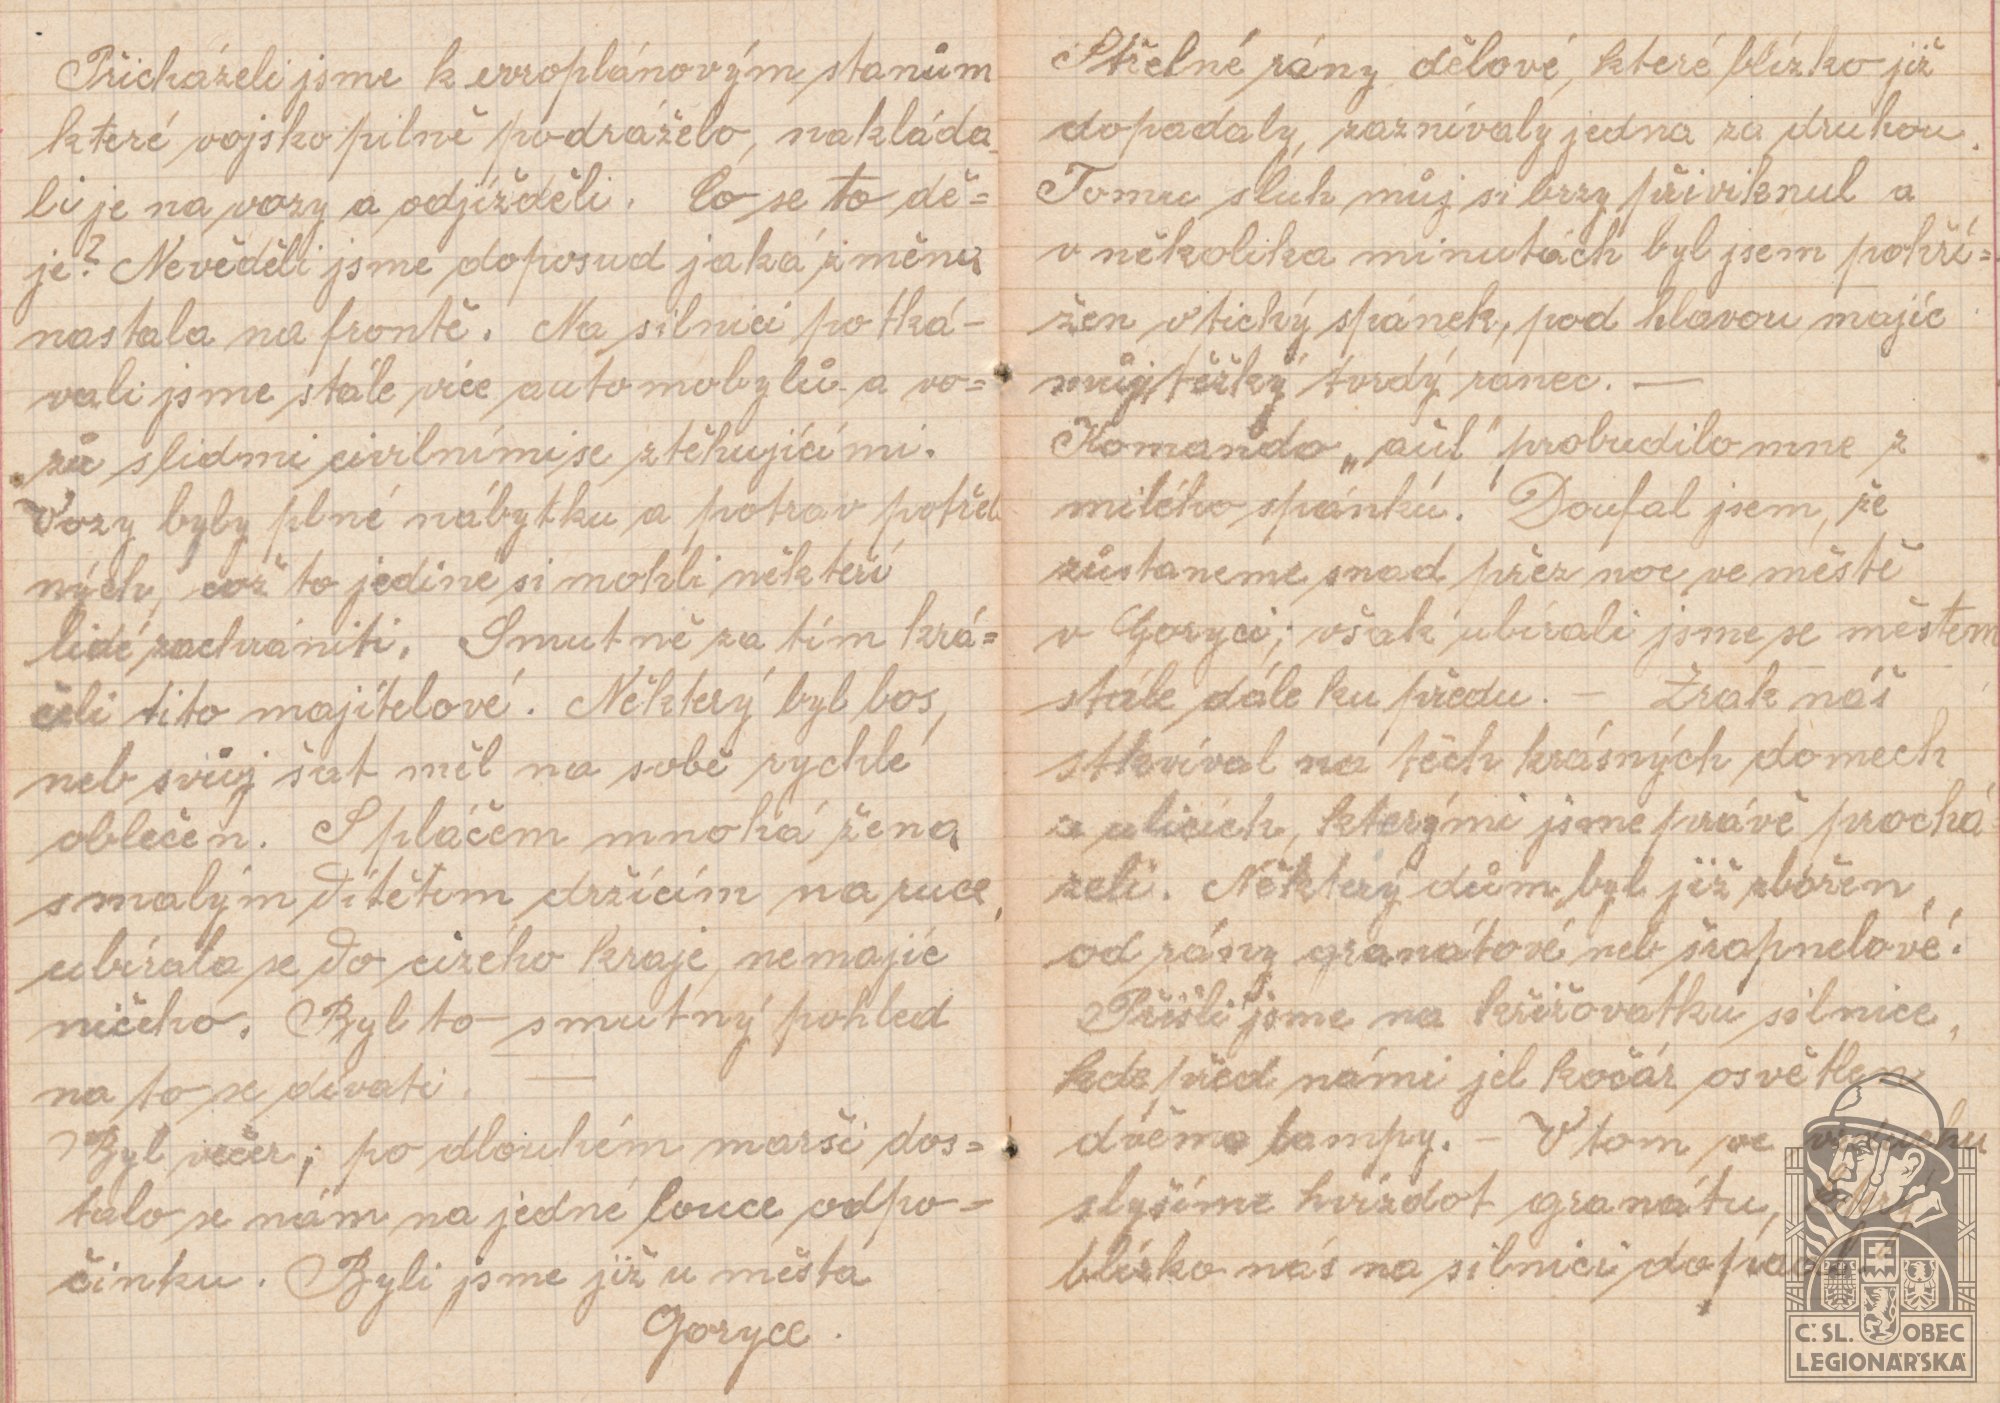 Přicházeli jsme k erroplánovým stanům
které vojsko pilně podráželo, nakláda
li je na vozy a odjížděli. Co se to dě=
je? Nevěděli jsme doposud jaká změna
nastala na frontě. Na silnici potká-
vali jsme stále více automobylů a vo=
zů slidmi civilními se ztěhujícími.
Vozy byly plné nábytku a potrav potřeb
ných, což to jedine si mohli někteří
lidé zachrániti. Smutně za tím krá=
čeli tito majitelové. Některý byl bos,
neb svůj šat měl na sobě rychle
oblečen. S pláčem mnohá žena
s malým dítětem držícím na ruce,
ubírala se do cizého kraje, nemajíc
ničeho. Byl to smutný pohled
na to se dívati. —
Byl večer; po dlouhém marši dos=
talo se nám na jedné louce odpo-
činku. Byli jsme již u města
Goryce.
Střelné rány dělové, které blízko již
dopadaly, zaznívaly jedna za druhou.
Tomu sluh můj si brzy přiviknul a
v několika minutách byl jsem pohří=
žen v tichý spánek, pod hlavou majíc
můj těžký tvrdý ranec. —
Komando „aúf" probudilo mne z
milého spánku. Doufal jsem, že
zůstaneme snad přez noc ve městě
v Goryci; však ubírali jsme se městem
stále dále ku předu. — Zrak náš
stkvíval na těch krásných domech
a ulicích, kterými jsme právě prochá
zeli. Některý dům byl již zbořen,
od rány granátové neb šrapnelové.
Přišli jsme na křižovatku silnice,
kde před námi jel kočár osvětlen
dvěma lampy. — V tom ve vzduchu
slyšíme hvízdot granátu, který
blízko nás na silnici dopadl
Č. SL. OBEC
LEGIONÁŘSKÁ